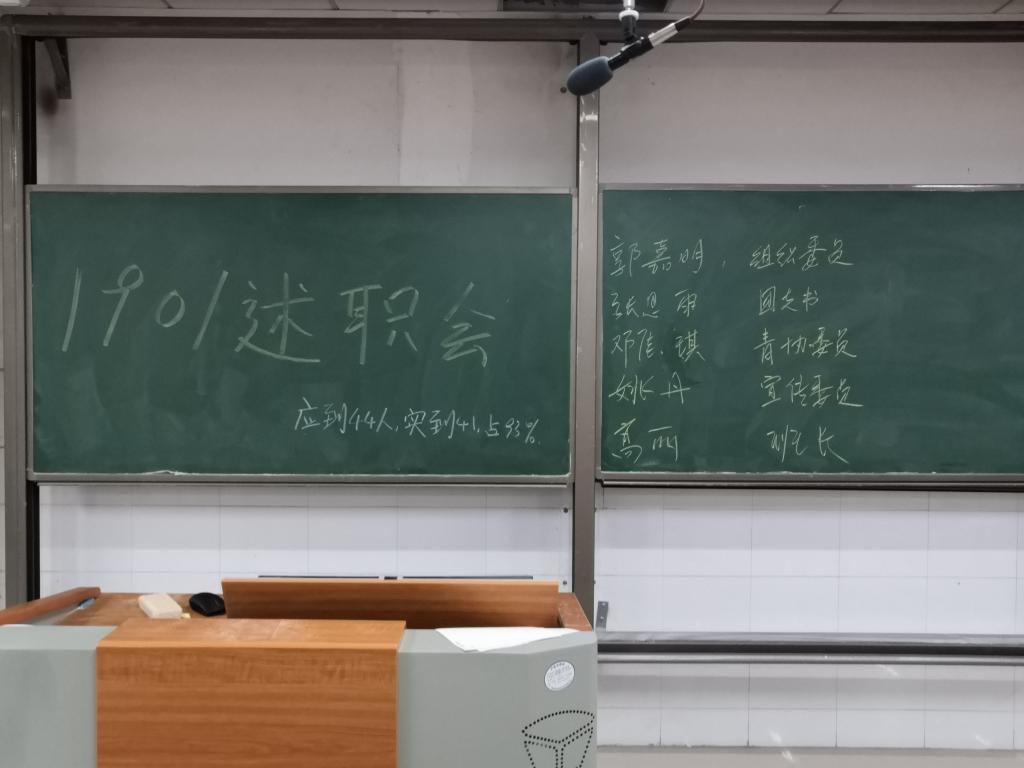 1901述职会
应到44人,实到41,占93%.
郭嘉明, 组织委员
张思雨 团支书
邓佳琪 青协委员
姚丹 宣传委员
高丽 班长